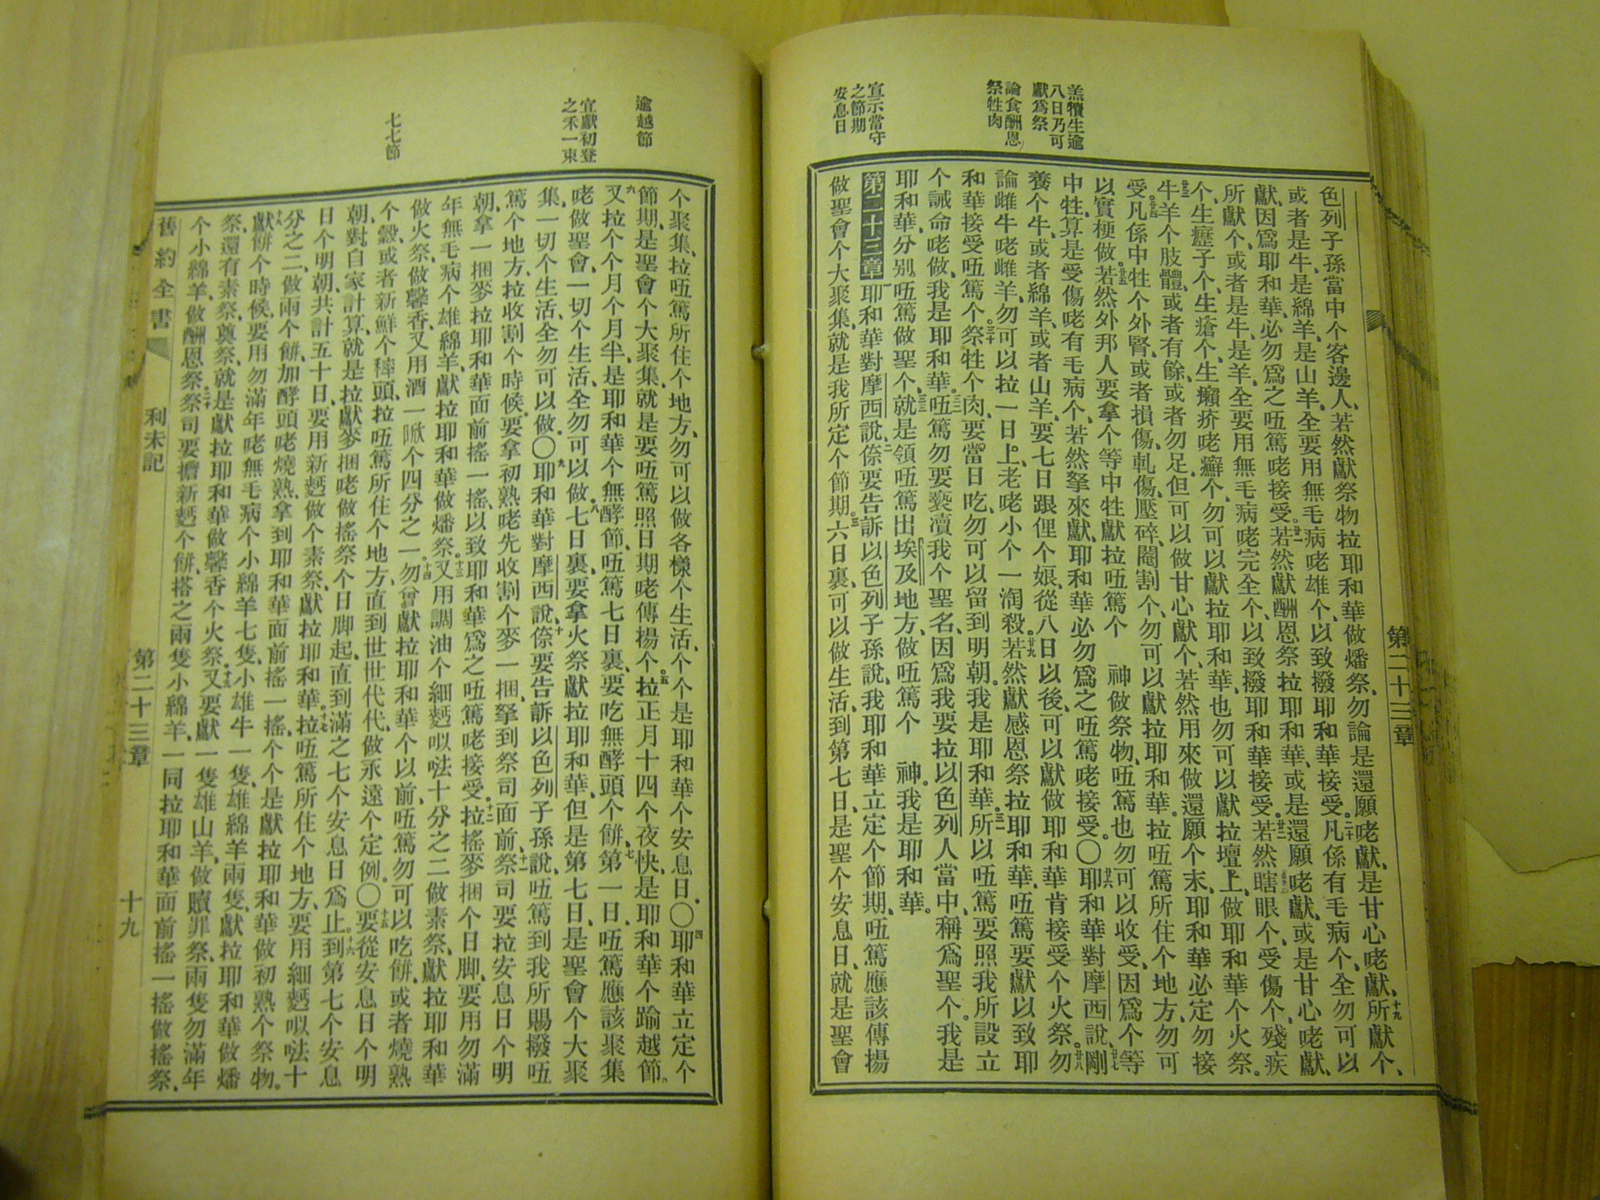 第二十三章
羔犢生逾
八日乃可
獻爲祭
論食酬恩
祭牲肉
宣示當守
之節期
安息日
色列子孫當中个客邊人、若然獻祭物拉耶和華做燔祭、勿論是還願咾獻、是甘心咾獻、所獻个、
或者是牛、是綿羊、是山羊、全要用無毛病咾雄个、以致撥耶和華接受。凡係有毛病个、全勿可以
獻、因爲耶和華、必勿爲之㕶篤咾接受。若然獻酬恩祭拉耶和華、或是還願咾獻、或是甘心咾獻、
所獻个、或者是牛、是羊、全要用無毛病咾完全个、以致撥耶和華接受。若然瞎眼个、受傷个、殘疾
个、生癧子个、生瘡个、生癩疥咾癬个、勿可以獻拉耶和華、也勿可以獻拉壇上、做耶和華个火祭。
牛羊个肢體、或者有餘、或者勿足、但可以做甘心獻个、若然用來做還願个末、耶和華必定勿接
受。凡係中牲个外腎、或者損傷、軋傷、壓碎、閹割个、勿可以獻拉耶和華。拉㕶篤所住个地方、勿可
以實梗做。若然外邦人要拿个等中牲獻拉㕶篤个　神做祭物、㕶篤也勿可以收受、因爲个等
中牲、算是受傷咾有毛病个、若然拏來獻、耶和華必勿爲之㕶篤咾接受。〇耶和華對摩西說、剛
養个牛、或者綿羊、或者山羊、要七日跟俚个娘、從八日以後、可以獻做耶和華肯接受个火祭。勿
論雌牛咾雌羊、勿可以拉一日上、老咾小个一淘殺。若然獻感恩祭拉耶和華、㕶篤要獻以致耶
和華接受㕶篤个。祭牲个肉、要當日吃、勿可以留到明朝。我是耶和華。所以㕶篤要照我所設立
个誡命咾做、我是耶和華。㕶篤勿要褻瀆我个聖名、因爲我要拉以色列人當中、稱爲聖个。我是
耶和華、分别㕶篤做聖个、就是領㕶篤出埃及地方、做㕶篤个　神。我是耶和華。
第二十三章耶和華對摩西說、倷要告訴以色列子孫說、我耶和華立定个節期、㕶篤應該傳揚
做聖會个大聚集、就是我所定个節期。六日裏、可以做生活、到第七日、是聖个安息日、就是聖會
逾越節
宜獻初登
之禾一束
七七節
个聚集、拉㕶篤所住个地方、勿可以做各樣个生活、个个是耶和華个安息日。〇耶和華立定个
節期、是聖會个大聚集、就是要㕶篤照日期咾傳揚个。拉正月十四个夜快、是耶和華个踰越節。
又拉个个月个月半、是耶和華个無酵節、㕶篤七日裏、要吃無酵頭个餅。第一日、㕶篤應該聚集
咾做聖會、一切个生活、全勿可以做。七日裏、要拿火祭獻拉耶和華、但是第七日、是聖會个大聚
集、一切个生活、全勿可以做。〇耶和華對摩西說、倷要告訴以色列子孫說、㕶篤到我所賜撥㕶
篤个地方、拉收割个時候、要拿初熟咾先收割个麥一捆、拏到祭司面前。祭司要拉安息日个明
朝、拿一捆麥拉耶和華面前搖一搖、以致耶和華爲之㕶篤咾接受。拉搖麥捆个日脚、要用勿滿
年無毛病个雄綿羊、獻拉耶和華做燔祭。又用調油个細麪㕥㕹十分之二做素祭、獻拉耶和華
做火祭、做馨香。又用酒一㕹个四分之一。勿曾獻拉耶和華个以前、㕶篤勿可以吃餅、或者燒熟
个穀、或者新鮮个穗頭、拉㕶篤所住个地方、直到世世代代、做永遠个定例。〇要從安息日个明
朝、對自家計算、就是拉獻麥捆咾做搖祭个日脚起、直到滿之七个安息日爲止。到第七个安息
日个明朝、共計五十日、要用新麪做个素祭、獻拉耶和華。拉㕶篤所住个地方、要用細麪㕥㕹十
分之二、做兩个餅、加酵頭咾燒熟、拿到耶和華面前搖一搖、个个是獻拉耶和華做初熟个祭物。
獻餅个時候、要用勿滿年咾無毛病个小綿羊七隻、小雄牛一隻、雄綿羊兩隻、獻拉耶和華做燔
祭、還有素祭奠祭、就是獻拉耶和華做馨香个火祭。又要獻一隻雄山羊、做贖罪祭、兩隻勿滿年
个小綿羊、做酬恩祭。祭司要擔新麪个餅、搭之兩隻小綿羊、一同拉耶和華面前搖一搖做搖祭、
舊約全書　利未記　第二十三章　十九